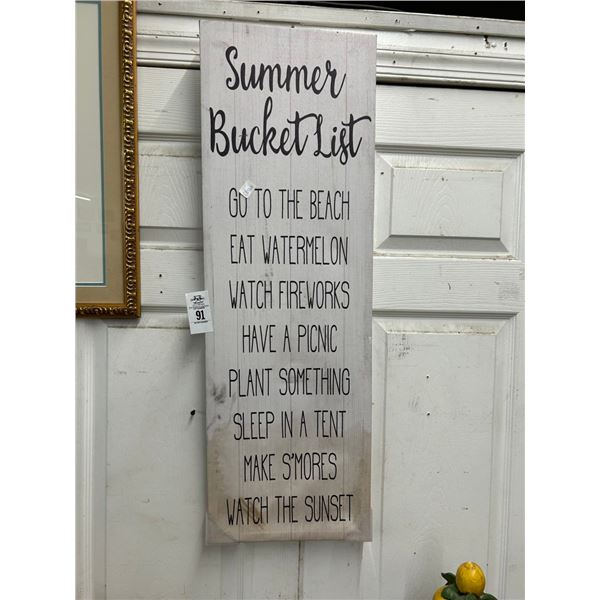 Summer
Bucket List
GO TO THE BEACH
EAT WATERMELON
WATCH FIREWORKS
HAVE A PICNIC
PLANT SOMETHING
SLEEP IN A TENT
MAKE S'MORES
WATCH THE SUNSET
91